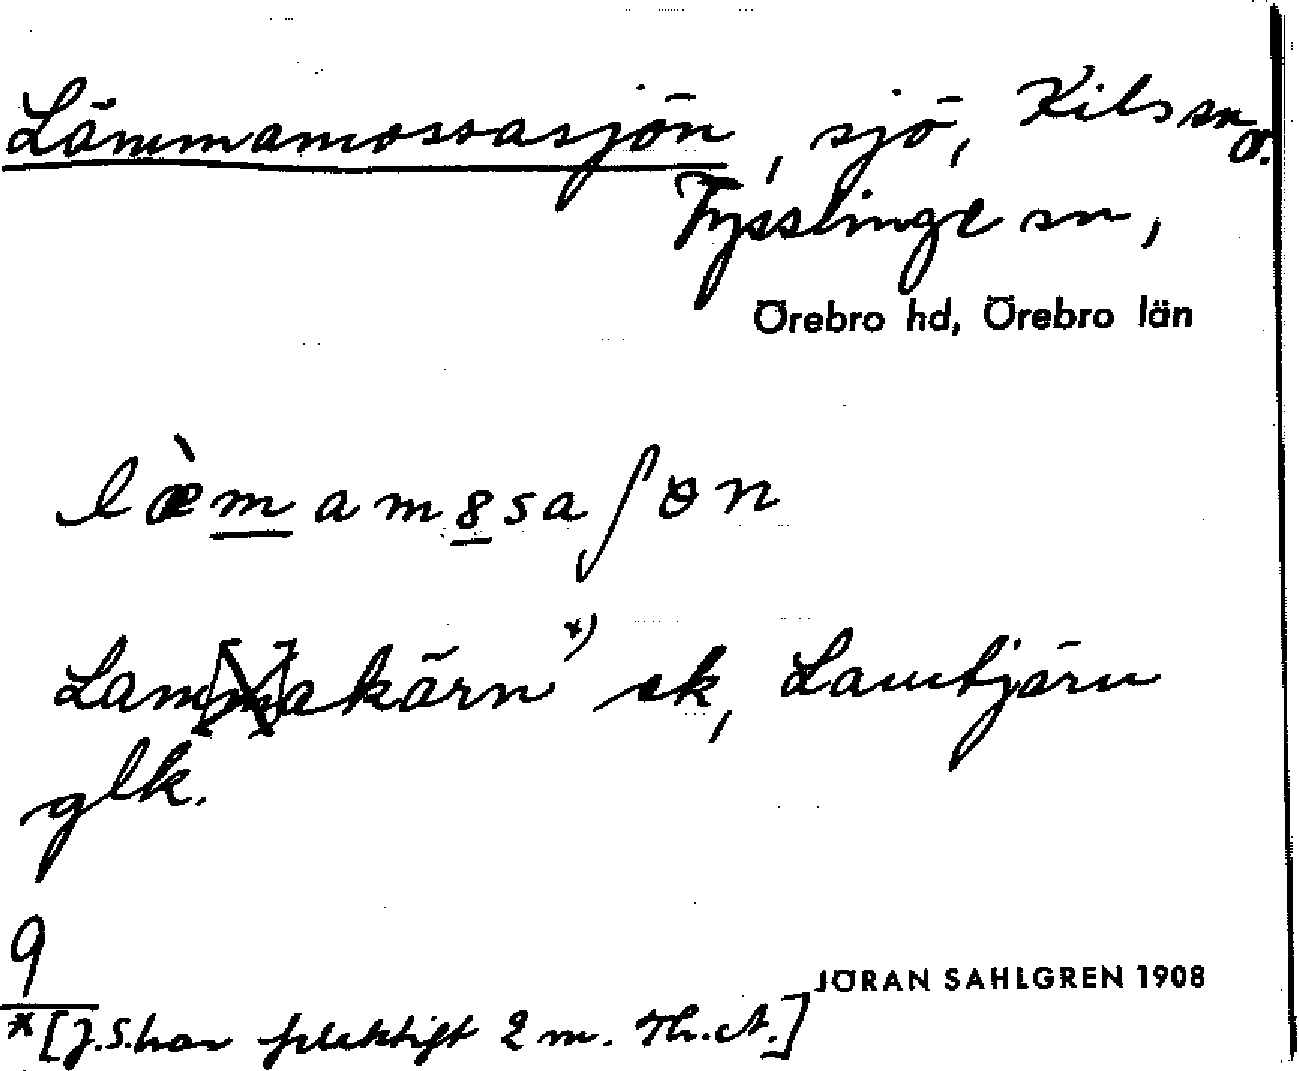 Lämmamossasjön, sjö, Kils sn o.
Tysslinge sn,
Örebro hd, Örebro län
læ̀mam8saʃɵn
Lam[m]akärn *) ek, Lamtjärn
glk.
9
JÖRAN SAHLGREN 1908
* [J.S. har felaktigt 2 m. Th.A.]